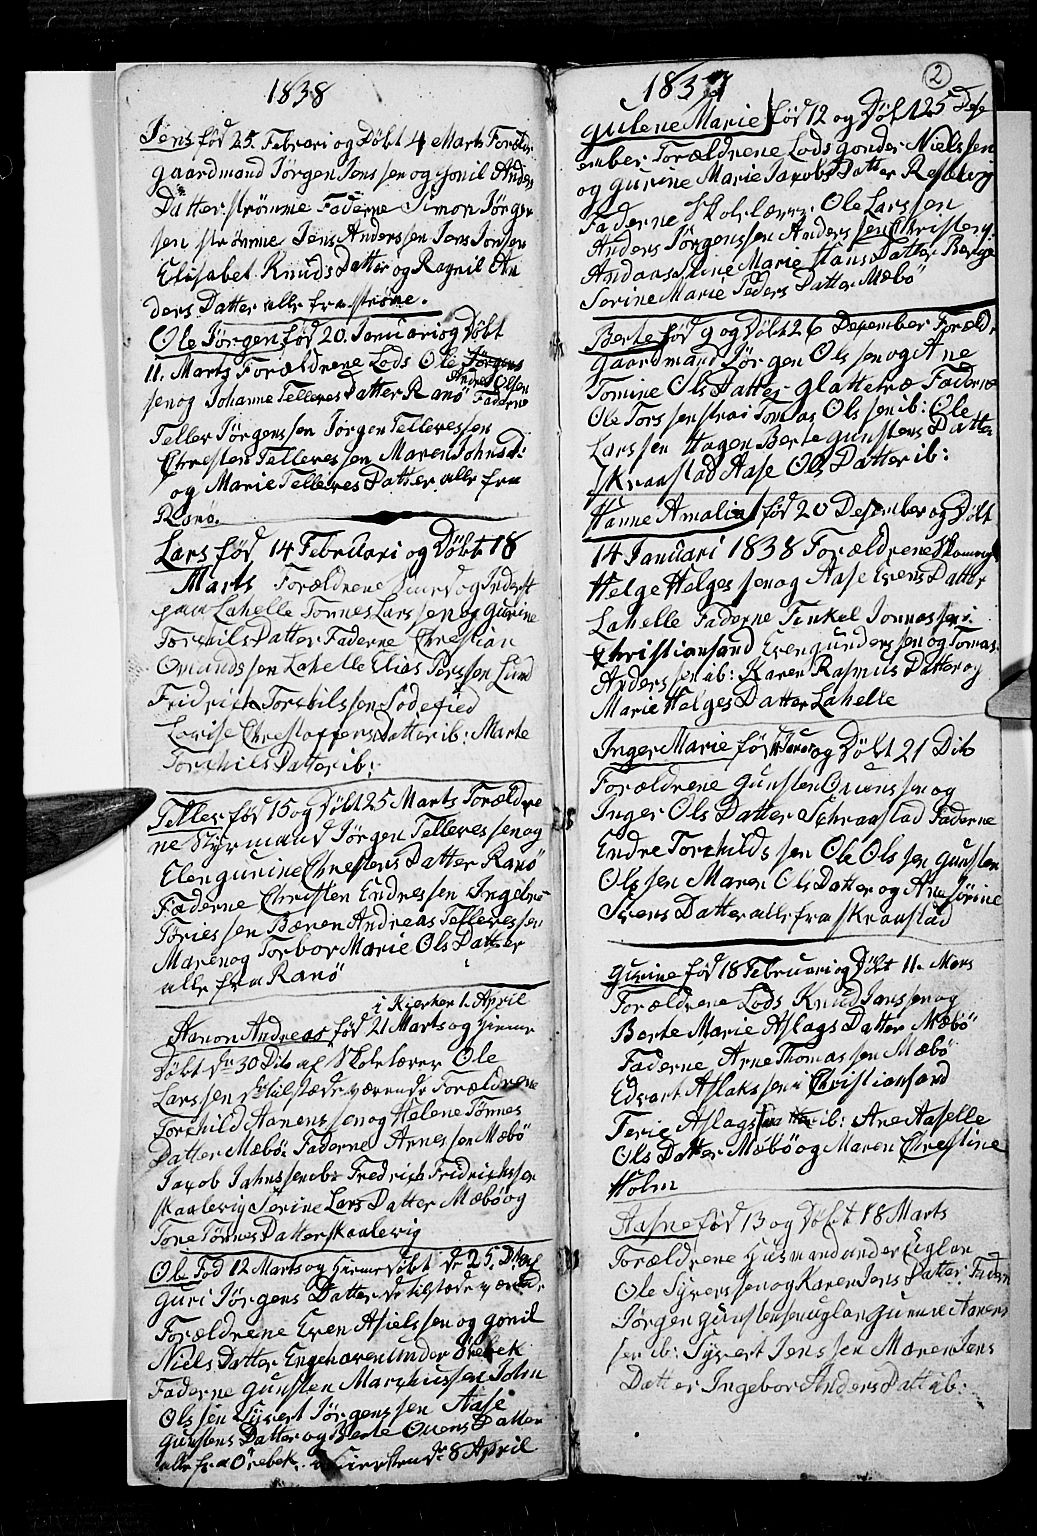 1838
Jens fød 25. Februari og Døbt 4 Marts Forældre
gaardmand Jörgen Jenssen og gonil Anders
Datter strömme Faderne Simon Jörgen
sen strömme Jens Anderssen Jens Jonsen
Elisabet Knuds Datter og Ragnil An
ders Datter alle fra ströme.
Ole Jörgen fød 20. Januari og Døbt
11. Marts Forældrene Lods Ole Jörgens
Andreas Olsen
sen og Johanne Telleres Datter Ranö Faderne
Teller Jörgenssen Jörgen Telleressen
Chresten Telleressen Maren Johns d:
og Marie Telleres Datter alle fra
Ranö.
Lars fød 14 Februari og Döbt 18
Marts Forældrene Inderst
Lahelle Tönnes Larssen og gurine
Torkils Datter Faderne Chrestian
Omundssen Lahelle Elias Perssen Lund
Fridrich Torkilssen Lodefied
Lovise Chrestoffers Datter ib: Marte
Torchils Datter ib:
Teller fød 15 og Døbt 25 Marts Forældre
ne Styrmand Jörgen Telleressen og
Elen gurine Chrestens Datter Ranö
Faderne Christen Endressen Ingebre
Töriessen Bæren Andreas Telleressen
Maren og Torbor Marie Ols Datter
alle fra Ranö
i Kierken 1. April
Aanon Andreas fød 21 Marts og Hieme
Døbt dn 30 Dito af Skolelærer Ole
Larssen de tilstæde værende Forældrene
Torchild Aanenssen og Helene Tönnes
Datter Mæbö. Faderne Arnessen Mæbö
Jacob Jahnssen ib: Fredrich Fridrichssen
skaalevig Serine Lars Datter Mæbö og
Tone Tönnes Datter skaalevig
Ole Fød 12 Marts og Hieme Døbt dn 25. Dito af
guri Jörgens Datter de tilstede værende
Forældrene Even Asielssen og gonil
Niels Datter Engehaven under Örebek
Faderne gunsten Marchussen John
Olssen Syvert Jörgenssen Aase
gunstens Datter og Berte Ouens Datter
alle fra Örebek. i Kierken dn 8 April
1837
2
gulene Marie fød 12 og Döbt 25 Des
ember Forældrene Lods gonder Nielssen
og gurine Marie Jacobs Datter
Faderne Skolelærer Ole Larssen
Anders Jörgenssen Anderssen Christens
Andaas Stine Marie Hans Datter Berge
Serine Marie Peders Datter Mæbö
Berte fød 9 og Døbt 26 Desember Foræld:
gaardmand Jörgen Olssen og Ane
Tomine Ols Datter glattetræ Faderne
Ole Torssen strai Tomas Olssen ib: Ole
Larssen Hagen Berte gunstens Datter
Skraastad Aase Ols Datter ib:
Hanne Amalia fød 20 Desember og Døbt
14 Januari 1838 Forældrene
Helge Helgessen og Aase Evens Datter
Lahelle Faderne Tinkel Jonnassen i
Christiansand Even gunderssen og Tomas
Anderssen ib: Karen Rasmus Datter og
Marie Helges Datter Lahelle
Inger Marie fød Januar og Døbt 21 Dito
Forældrene gunsten Ouenssen og
Inger Ols Datter Schraastad Faderne
Endre Torchildssen Ole Olssen gunsten
Olssen Maren Ols Datter og Ane Sörine
Svens Datter alle fra skraastad
gurine fød 18 Februari og Døbt 11. Mars
Forældrene Lods Knud Janssen og
Berte Marie Aslags Datter Mæbö
Faderne Arne Thomassen Mæbö
Edvart Aslakssen i Christiansand
Terie Aslagssen ib: Ane Aaselle
Ols Datter Mæbö og Maren Chrestine
Holm
Aasne fød 13 og Døbt 18 Marts
Forældrene Husmand under Uglan
Ole Syverssen og Karen Jens Datter Fadern
Jörgen gunstensen uglan gunne Aanens
sen ib: Syvert Jenssen Maren Jens
Datter Ingebor Anders Datt ib: